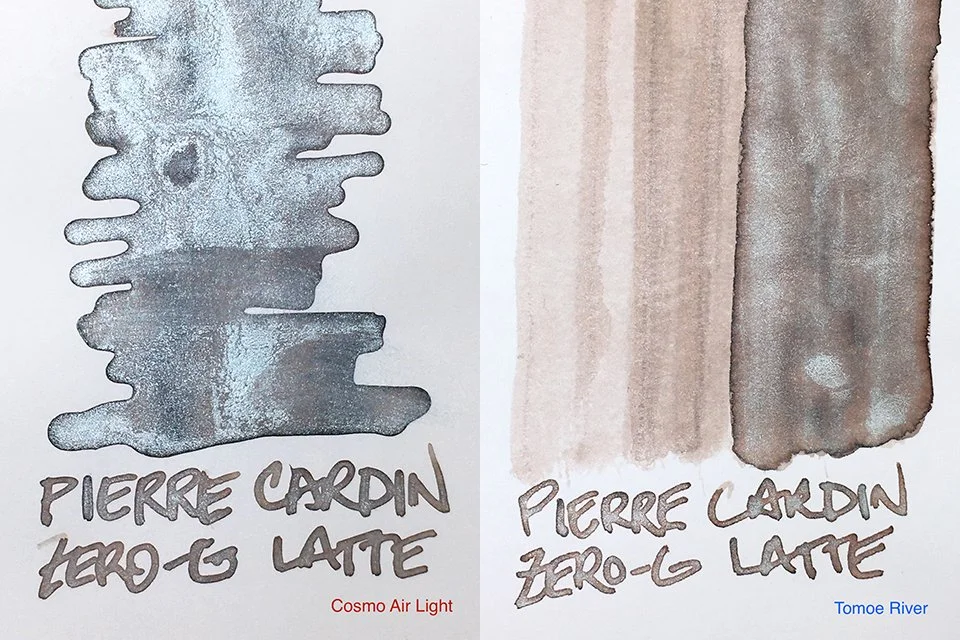 PIERRE CARDIN
ZERO-G LATTE
Cosmo Air Light
PIERRE CARDIN
ZERO-G LATTE
Tomoe River